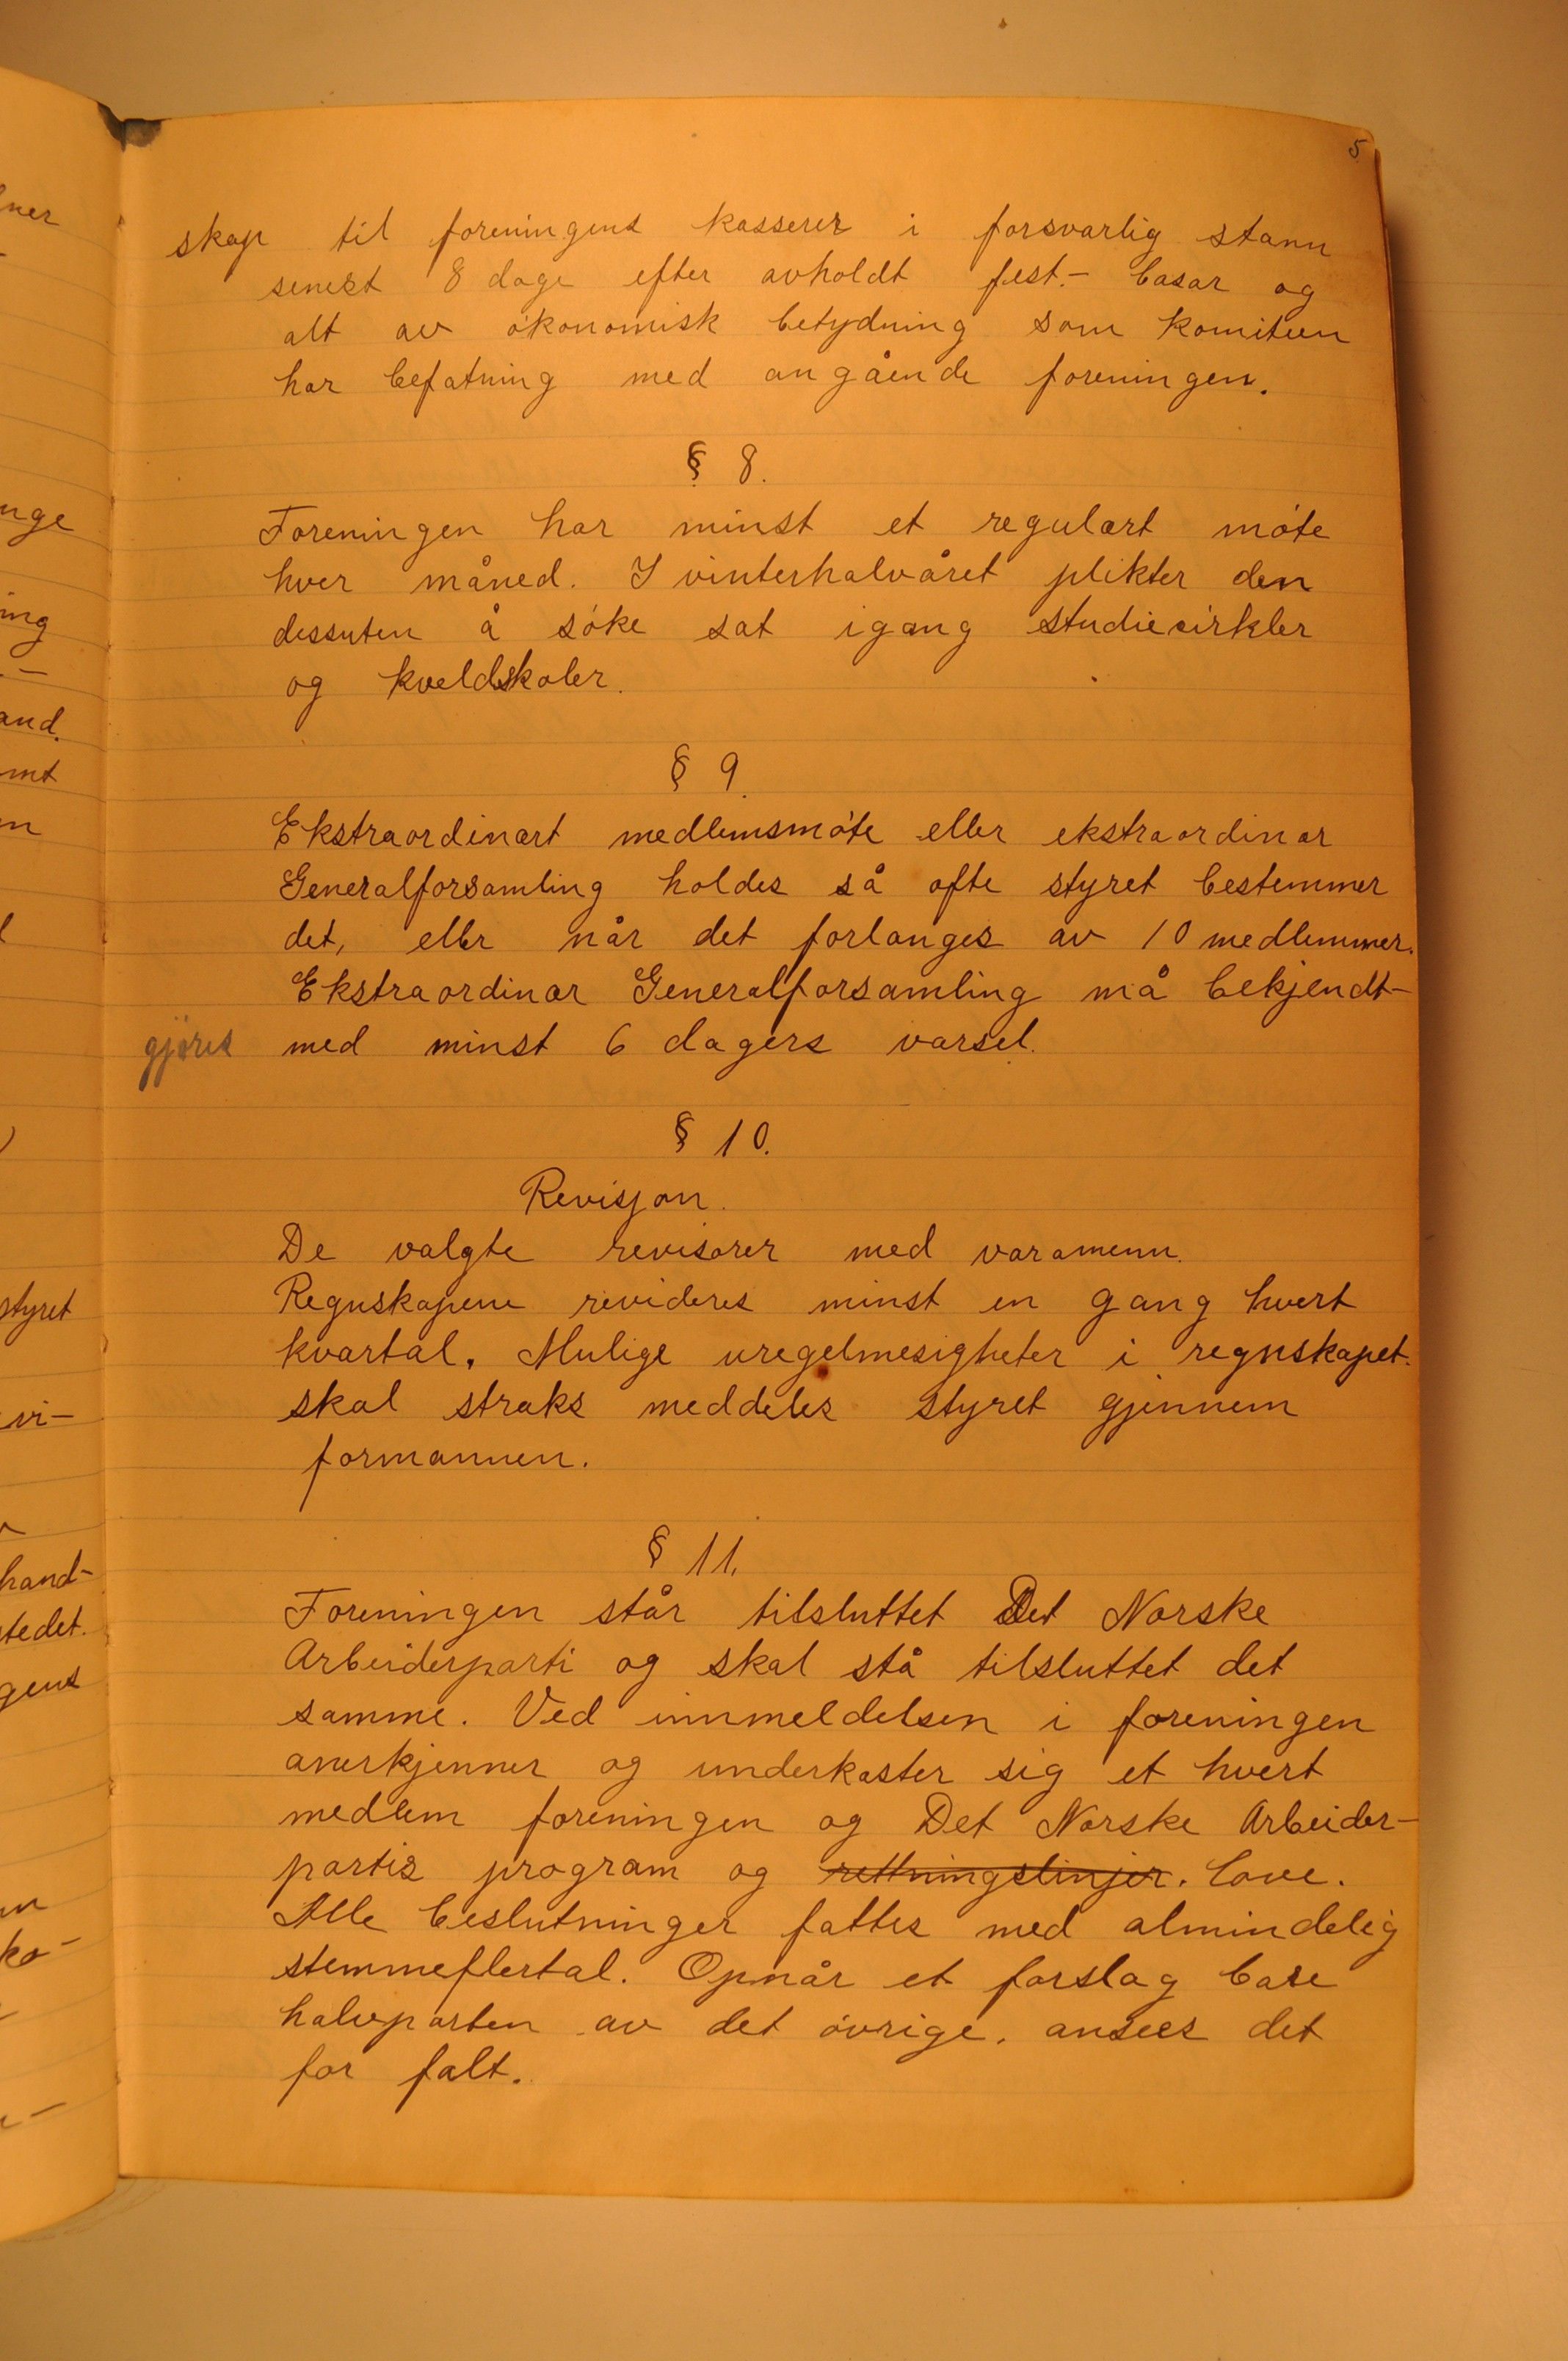 5
skap til foreningens kasserer i forsvarlig stann
senest 8 dage efter avholdt fest.- basar og
alt av økonomisk betydning som komiteen
har befatning med angående foreningen.
§ 8.
Foreningen har minst et regulært møte
hver måned. I vinterhalvåret plikter den
dessuten å søke sat igang studiecirkler
og kveldskoler.
§ 9.
Ekstraordinært medlemsmøte eller ekstraordinær
Generalforsamling holdes så ofte styret bestemmer
det, eller når det forlanges av 10 medlemmer.
Ekstraordinær Generalforsamling må bekjendt-
gjøres med minst 6 dagers varsel.
§ 10.
Revisjon.
De valgte revisorer med varamenn.
Regnskapene revideres minst en gang hvert
kvartal. Mulige uregelmesigheter i regnskapet.
skal straks meddeles styret gjennem
formannen.
§ 11.
Foreningen står tilsluttet Det Norske
Arbeiderparti og skal stå tilsluttet det
samme. Ved innmeldelsen i foreningen
anerkjenner og underkaster sig et hvert
medlem foreningen og Det Norske Arbeider-
partis program og rettningslinjer. love.
Alle beslutninger fattes med almindelig
stemmeflertal. Opnår et forslag bare
halvparten av det øvrige. ansees det
for falt.
ner
nge
ing
and.
mt
styret
vi-
hand-
stedet.
gens
ko-